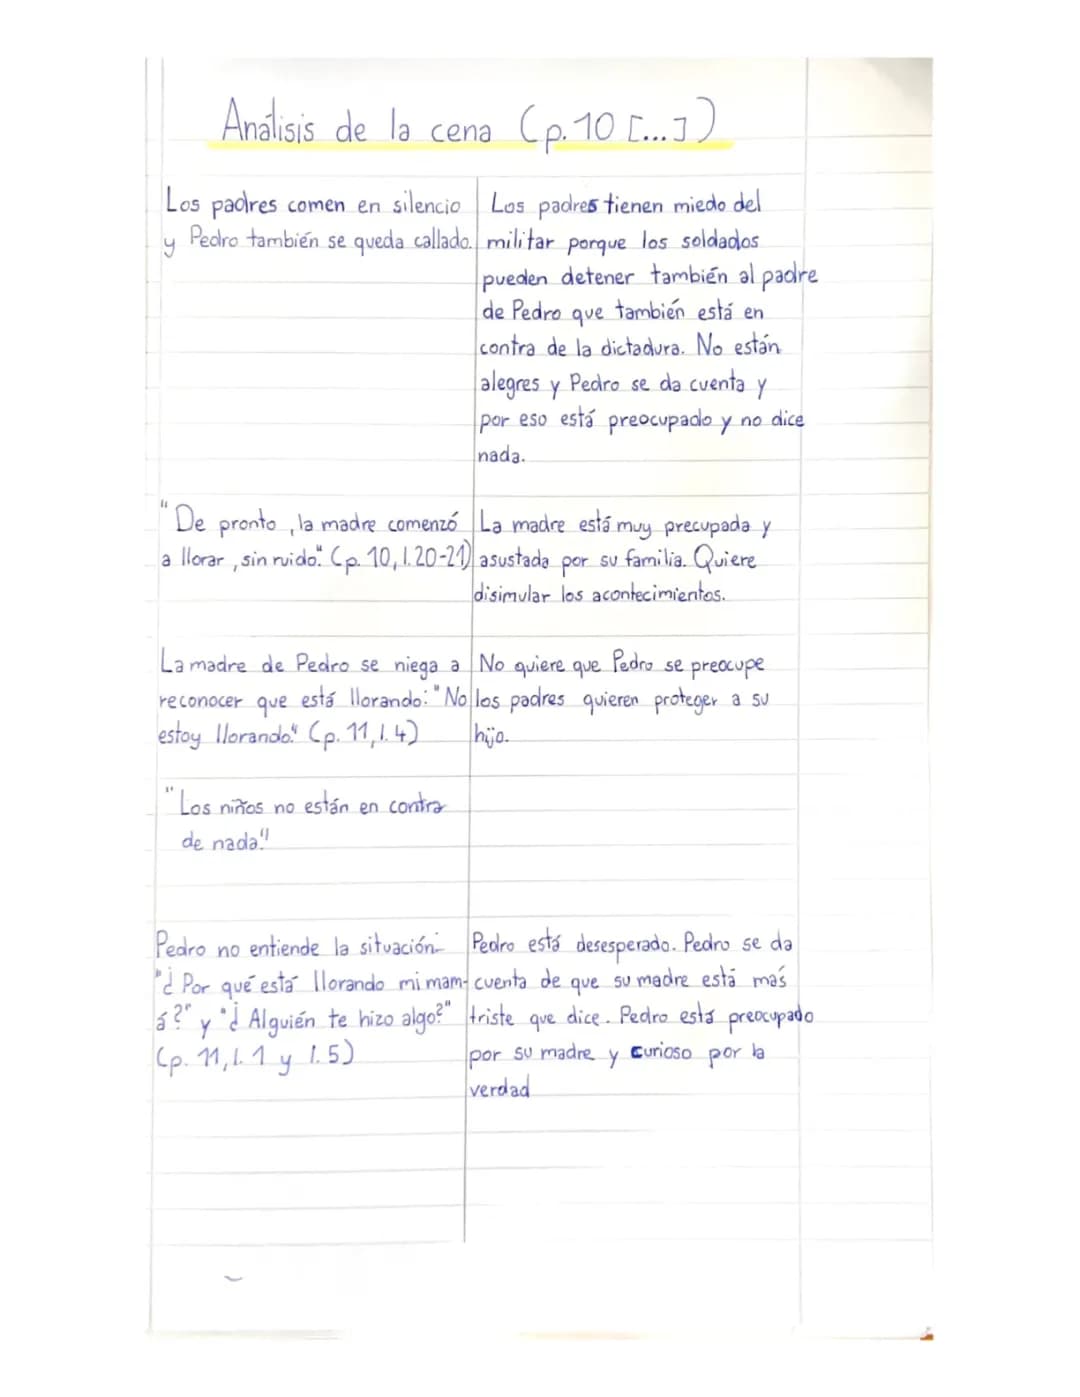 Análisis de la cena (p.10 [...])
Los padres comen en silencio
y Pedro también se queda callado.
Los padres tienen miedo del
militar porque los soldados
pueden detener también al padre
de Pedro que también está en
contra de la dictadura. No están
alegres y Pedro se da cuenta y
por eso está preocupado y no dice
nada.
"De pronto, la madre comenzó
a llorar, sin ruido." (p. 10, l. 20-21)
La madre está muy precupada y
asustada por su familia. Quiere
disimular los acontecimientos.
La madre de Pedro se niega a
reconocer que está llorando: "No
estoy llorando." (p. 11, l. 4)
No quiere que Pedro se preocupe
los padres quieren proteger a su
hijo.
"Los niños no están en contra
de nada."
Pedro no entiende la situación:
"¿Por qué está llorando mi mam-
á?" y "¿Alguién te hizo algo?"
(p. 11, l. 1 y l. 5)
Pedro está desesperado. Pedro se da
cuenta de que su madre está más
triste que dice. Pedro está preocupado
por su madre y curioso por la
verdad